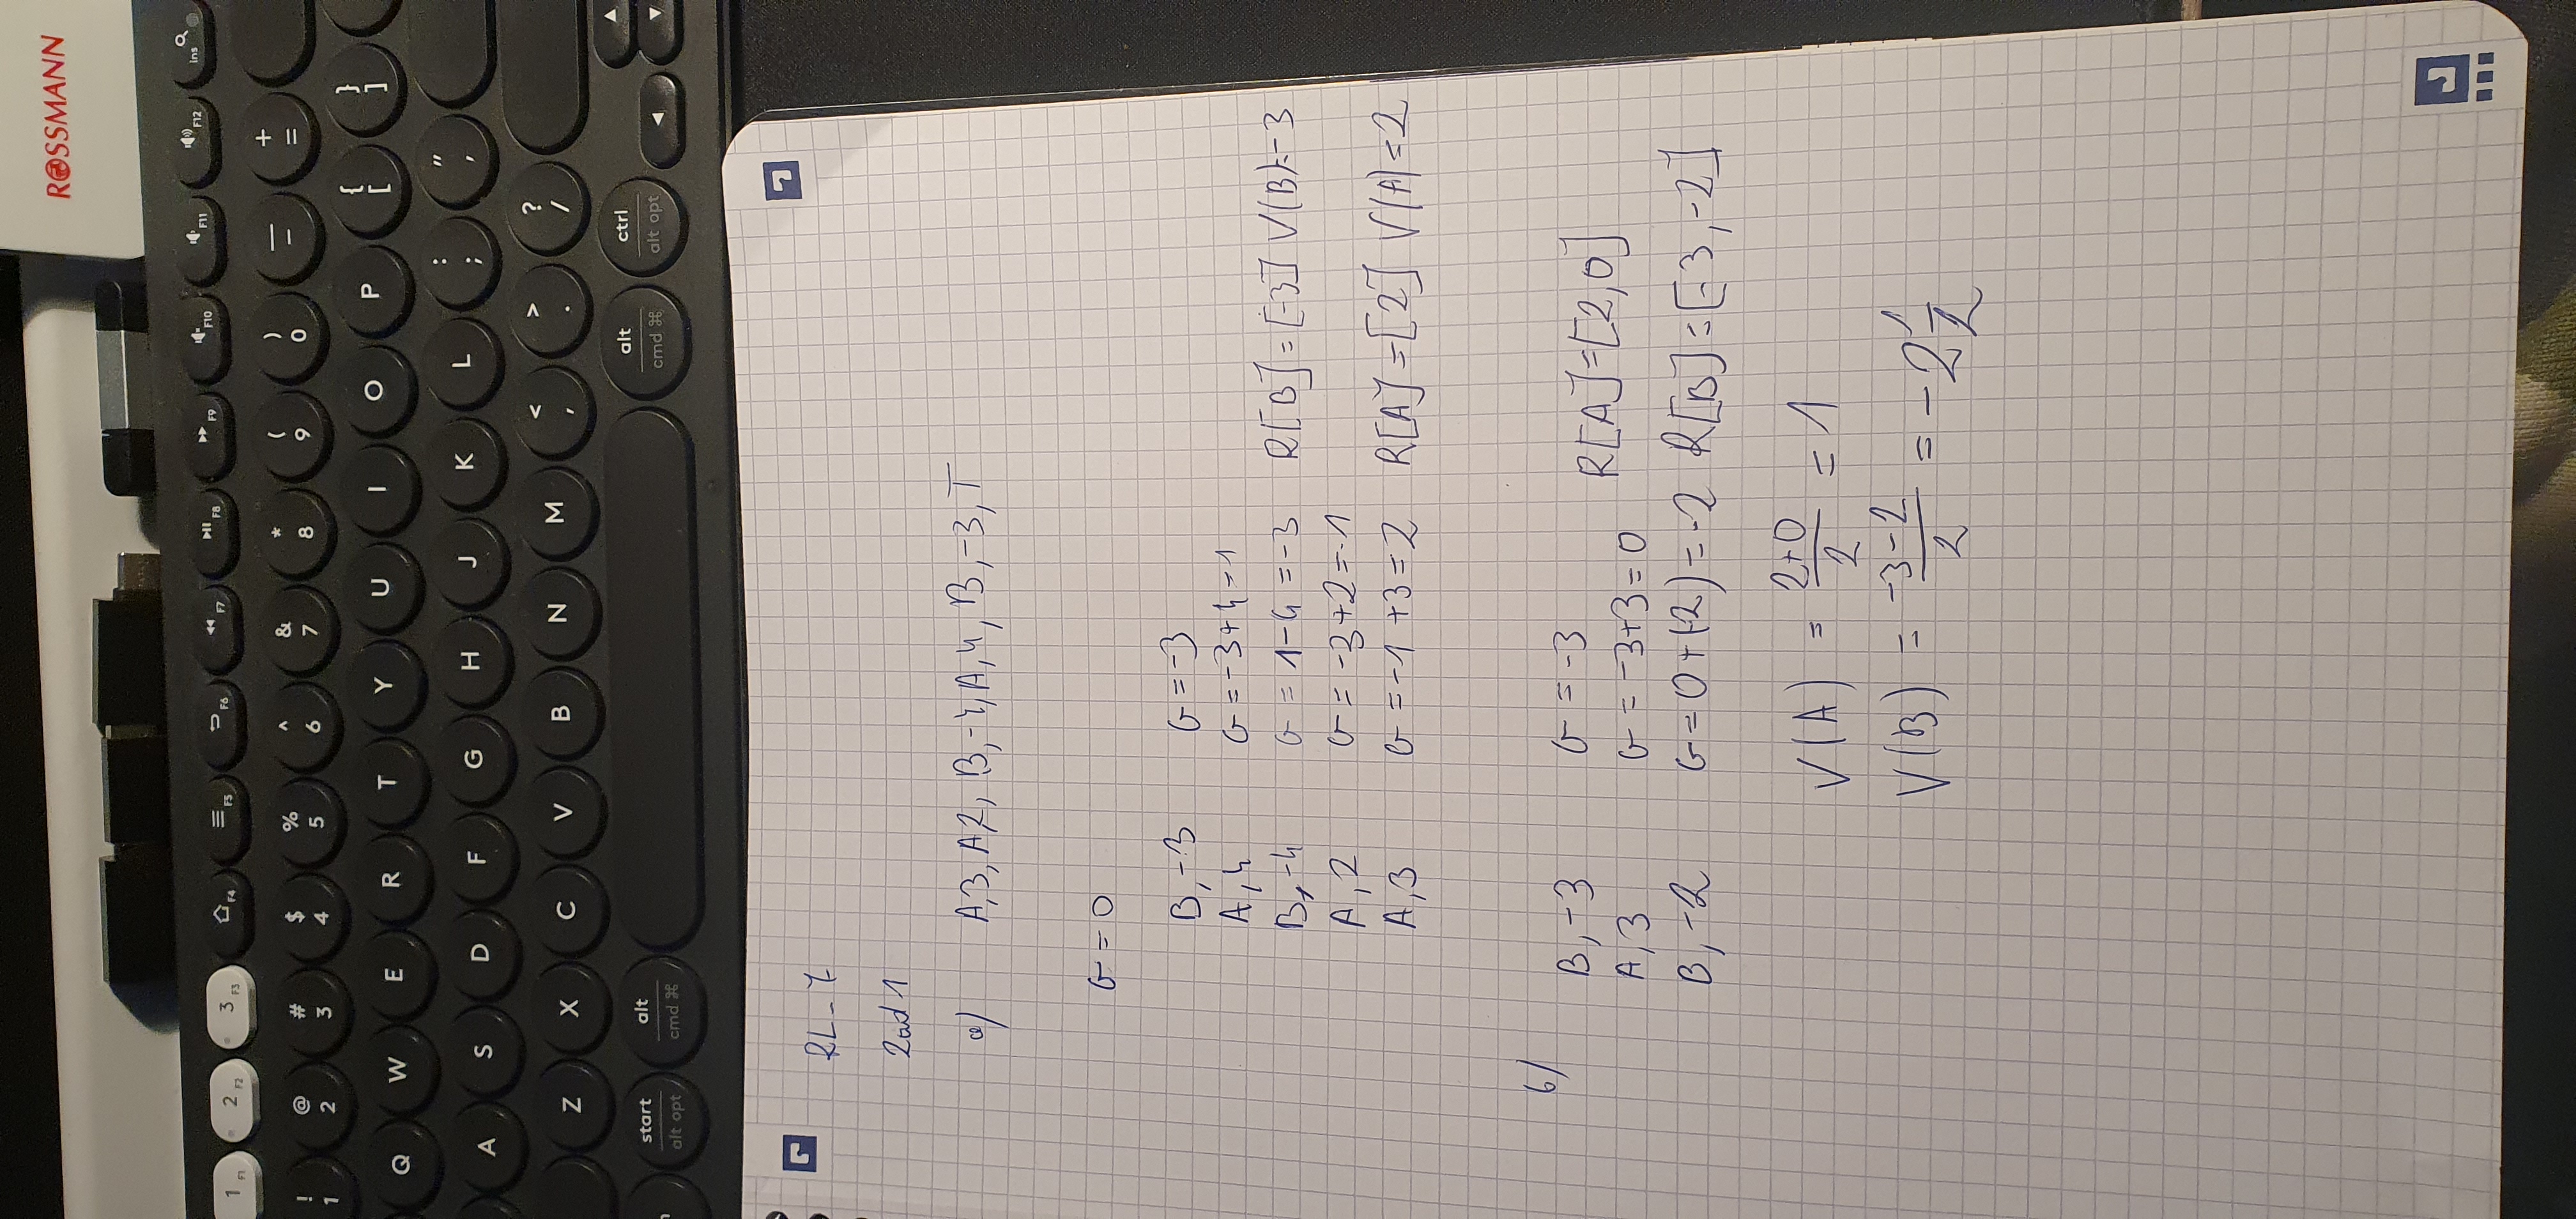 ROSSMANN
1 F1 2 F2 3 F3 F4 F5 F6 F7 F8 F9 F10 F11 F12 ins
! @ # $ % ^ & * ( ) — +
1 2 3 4 5 6 7 8 9 0 – =
Q W E R T Y U I O P { [ } ]
A S D F G H J K L : ; " '
Z X C V B N M < , > . ? /
start alt alt ctrl
alt opt cmd ⌘ cmd ⌘ alt opt
RL-7
Zad 1
a) A,3, A,2, B,-4, A,4, B,-3, T
G = 0
B,-3 G = -3
A,4 G = -3+4=1
B,-4 G = 1-4 = -3 R[B] = [-3] V(B)=-3
A,2 G = -3+2=-1
A,3 G = -1+3=2 R[A] = [2] V(A)=2
b)
B,-3 G = -3
R[A]=[2,0]
A,3 G = -3+3=0
B,-2 G=0+(-2)=-2 R[B]=[-3,-2]
V(A) = 2+0/2 = 1
V(B) = -3-2/2 = -2 1/2